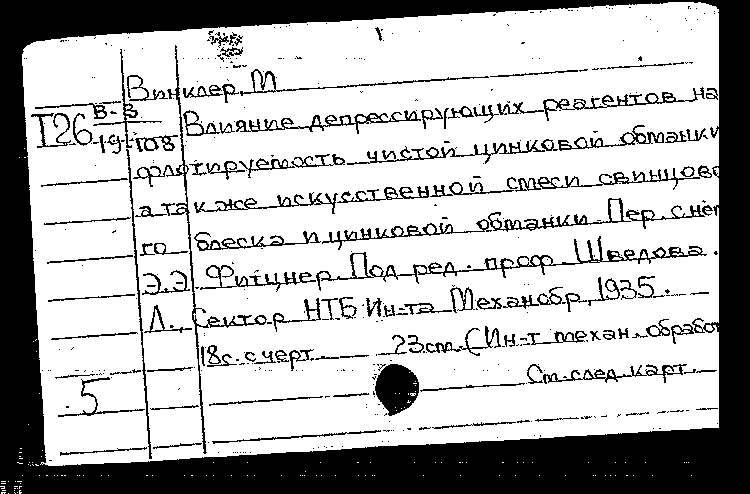 1
Винклер, М
I26 В-3
19-108 Влияние депрессирующих реагентов на
флотируемость чистой цинковой обманки
а также искусственной смеси свинцово
го блеска и цинковой обманки. Пер. с нем
Э.Э. Фитцнер. Под ред. проф. Шведова.
Л., Сектор НТБ Ин-та Механобр, 1935.
18с. с черт. 23см. (Ин-т механ. обработ
См. след. карт.
5